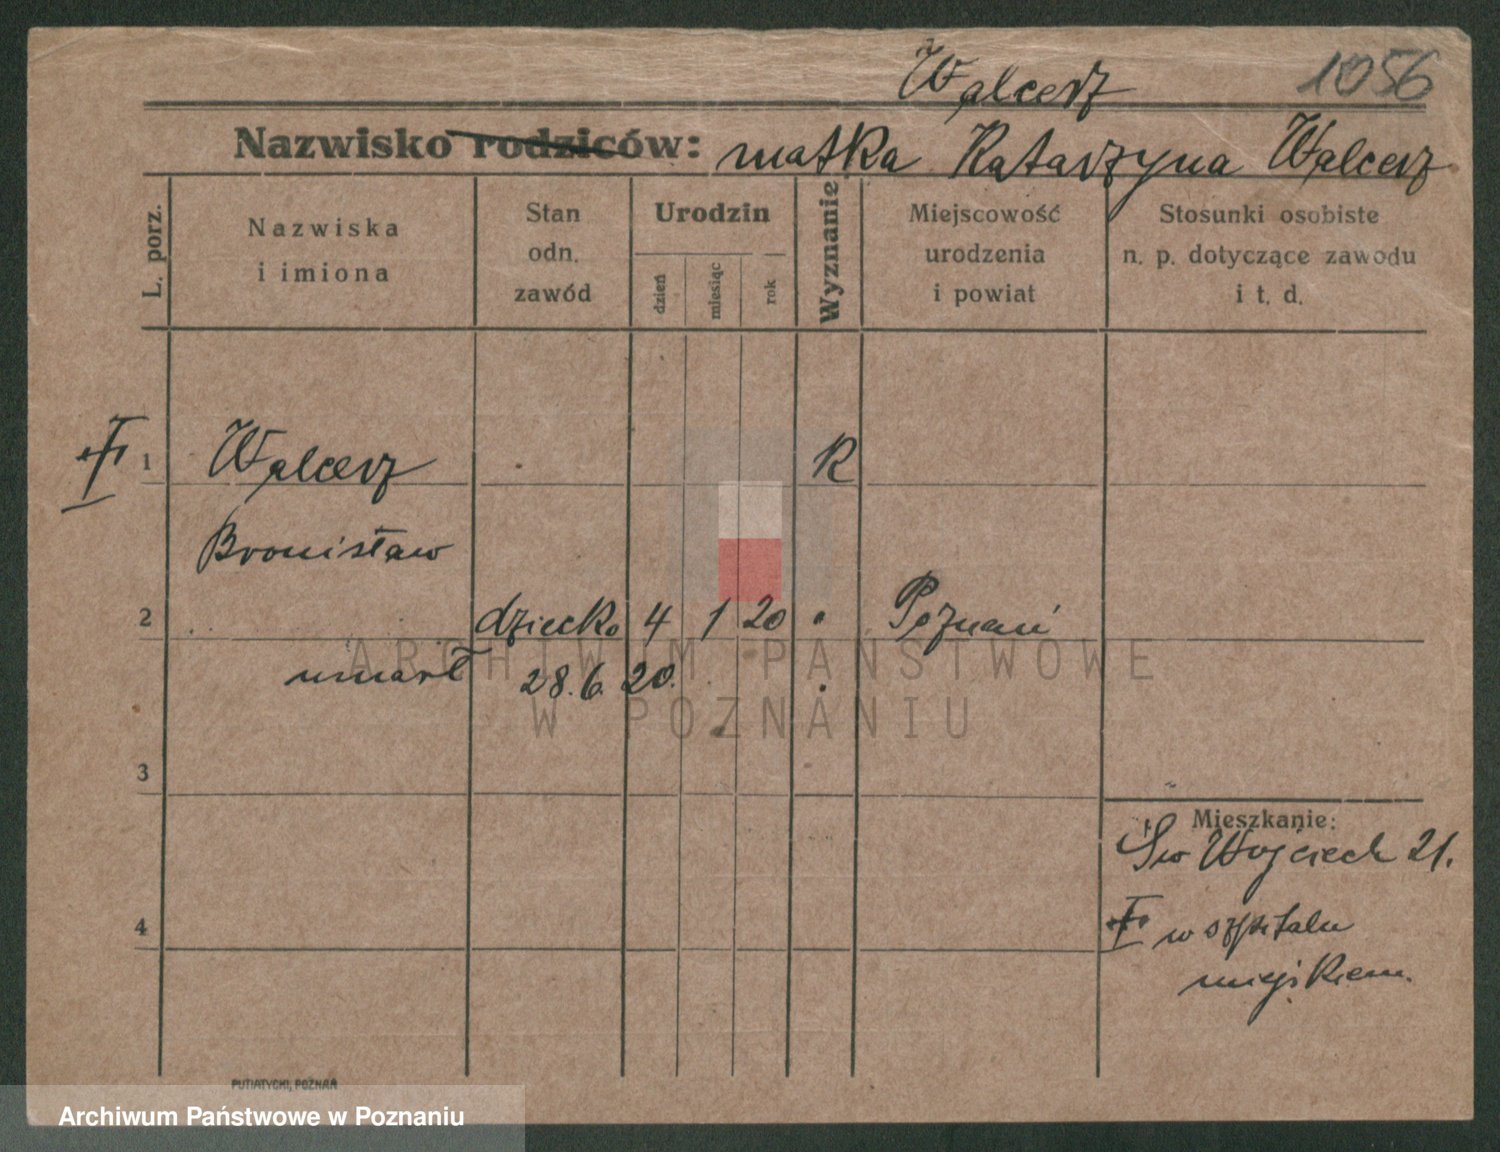 Walcerz 1056
Nazwisko rodziców: matka Katarzyna Walcerz
L. porz.
Nazwiska
i imiona
Stan
odn.
zawód
Urodzin
dzień
miesiąc
rok
Wyznanie
Miejscowość
urodzenia
i powiat
Stosunki osobiste
n. p. dotyczące zawodu
i t. d.
1 Walcerz R
Bronisław
2 dziecko 4 1 20 Poznań
umarł 28.6.20.
ARCHIWUM PAŃSTWOWE
W POZNANIU
3
Mieszkanie:
Św Wojciech 21.
4
w szpitalu
miejskiem.
PUTIATYCKI, POZNAŃ
Archiwum Państwowe w Poznaniu